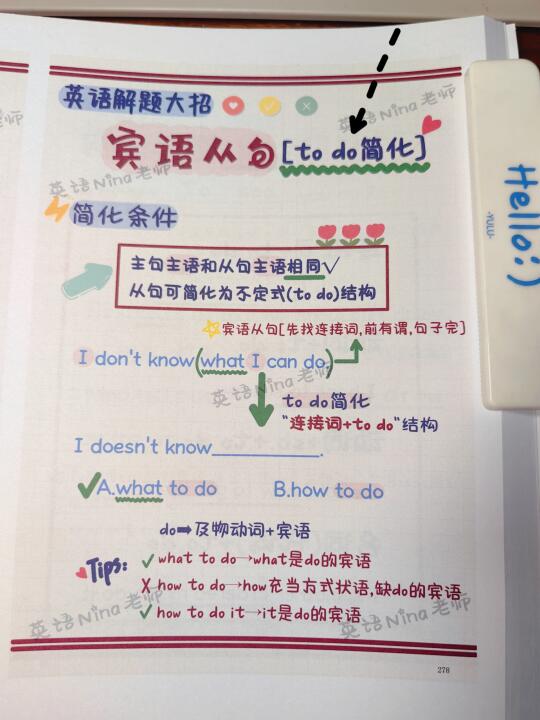 英语解题大招
宾语从句[to do简化]
简化条件
主句主语和从句主语相同√
从句可简化为不定式(to do)结构
宾语从句[先找连接词,前有谓,句子完]
I don't know(what I can do.)
to do简化
"连接词+to do"结构
I doesn't know__________.
A.what to do B.how to do
do➡及物动词+宾语
Tips:
✓what to do→what是do的宾语
X how to do→how充当方式状语,缺do的宾语
✓how to do it→it是do的宾语
278
Hello:)
-YULU-
英语Nina老师
英语Nina老师
英语Nina老师
英语Nina老师
英语Nina老师